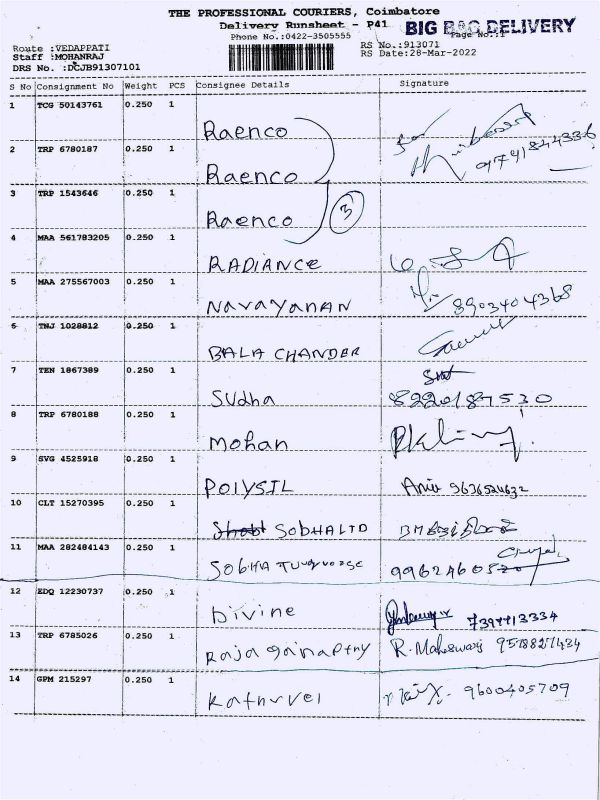 THE PROFESSIONAL COURIERS, Coimbatore
Delivery Runsheet - P41 BIG BAG DELIVERY
Phone No.:0422-3505555 Page No.:1
Route :VEDAPPATI RS No.:913071
Staff :MOHANRAJ RS Date:28-Mar-2022
DRS No. :DCJB91307101
S No Consignment No Weight PCS Consignee Details Signature
1 TCG 50143761 0.250 1 Raenco
2 TRP 6780187 0.250 1 Raenco
3 TRP 1543646 0.250 1 Raenco 3
4 MAA 561783205 0.250 1 RADIANCE
5 MAA 275567003 0.250 1 Navayanan 8903404368
6 TNJ 1028812 0.250 1 BALA CHANDER
7 TEN 1867389 0.250 1 Sudha 8220187530
8 TRP 6780188 0.250 1 Mohan
9 SVG 4525918 0.250 1 POlYSIL
10 CLT 15270395 0.250 1 SOBHALTD
11 MAA 282484143 0.250 1 SOBHA
12 EDQ 12230737 0.250 1 Divine
13 TRP 6785026 0.250 1 Raja R. Maheswary
14 GPM 215297 0.250 1 Kathrvel 9600405709